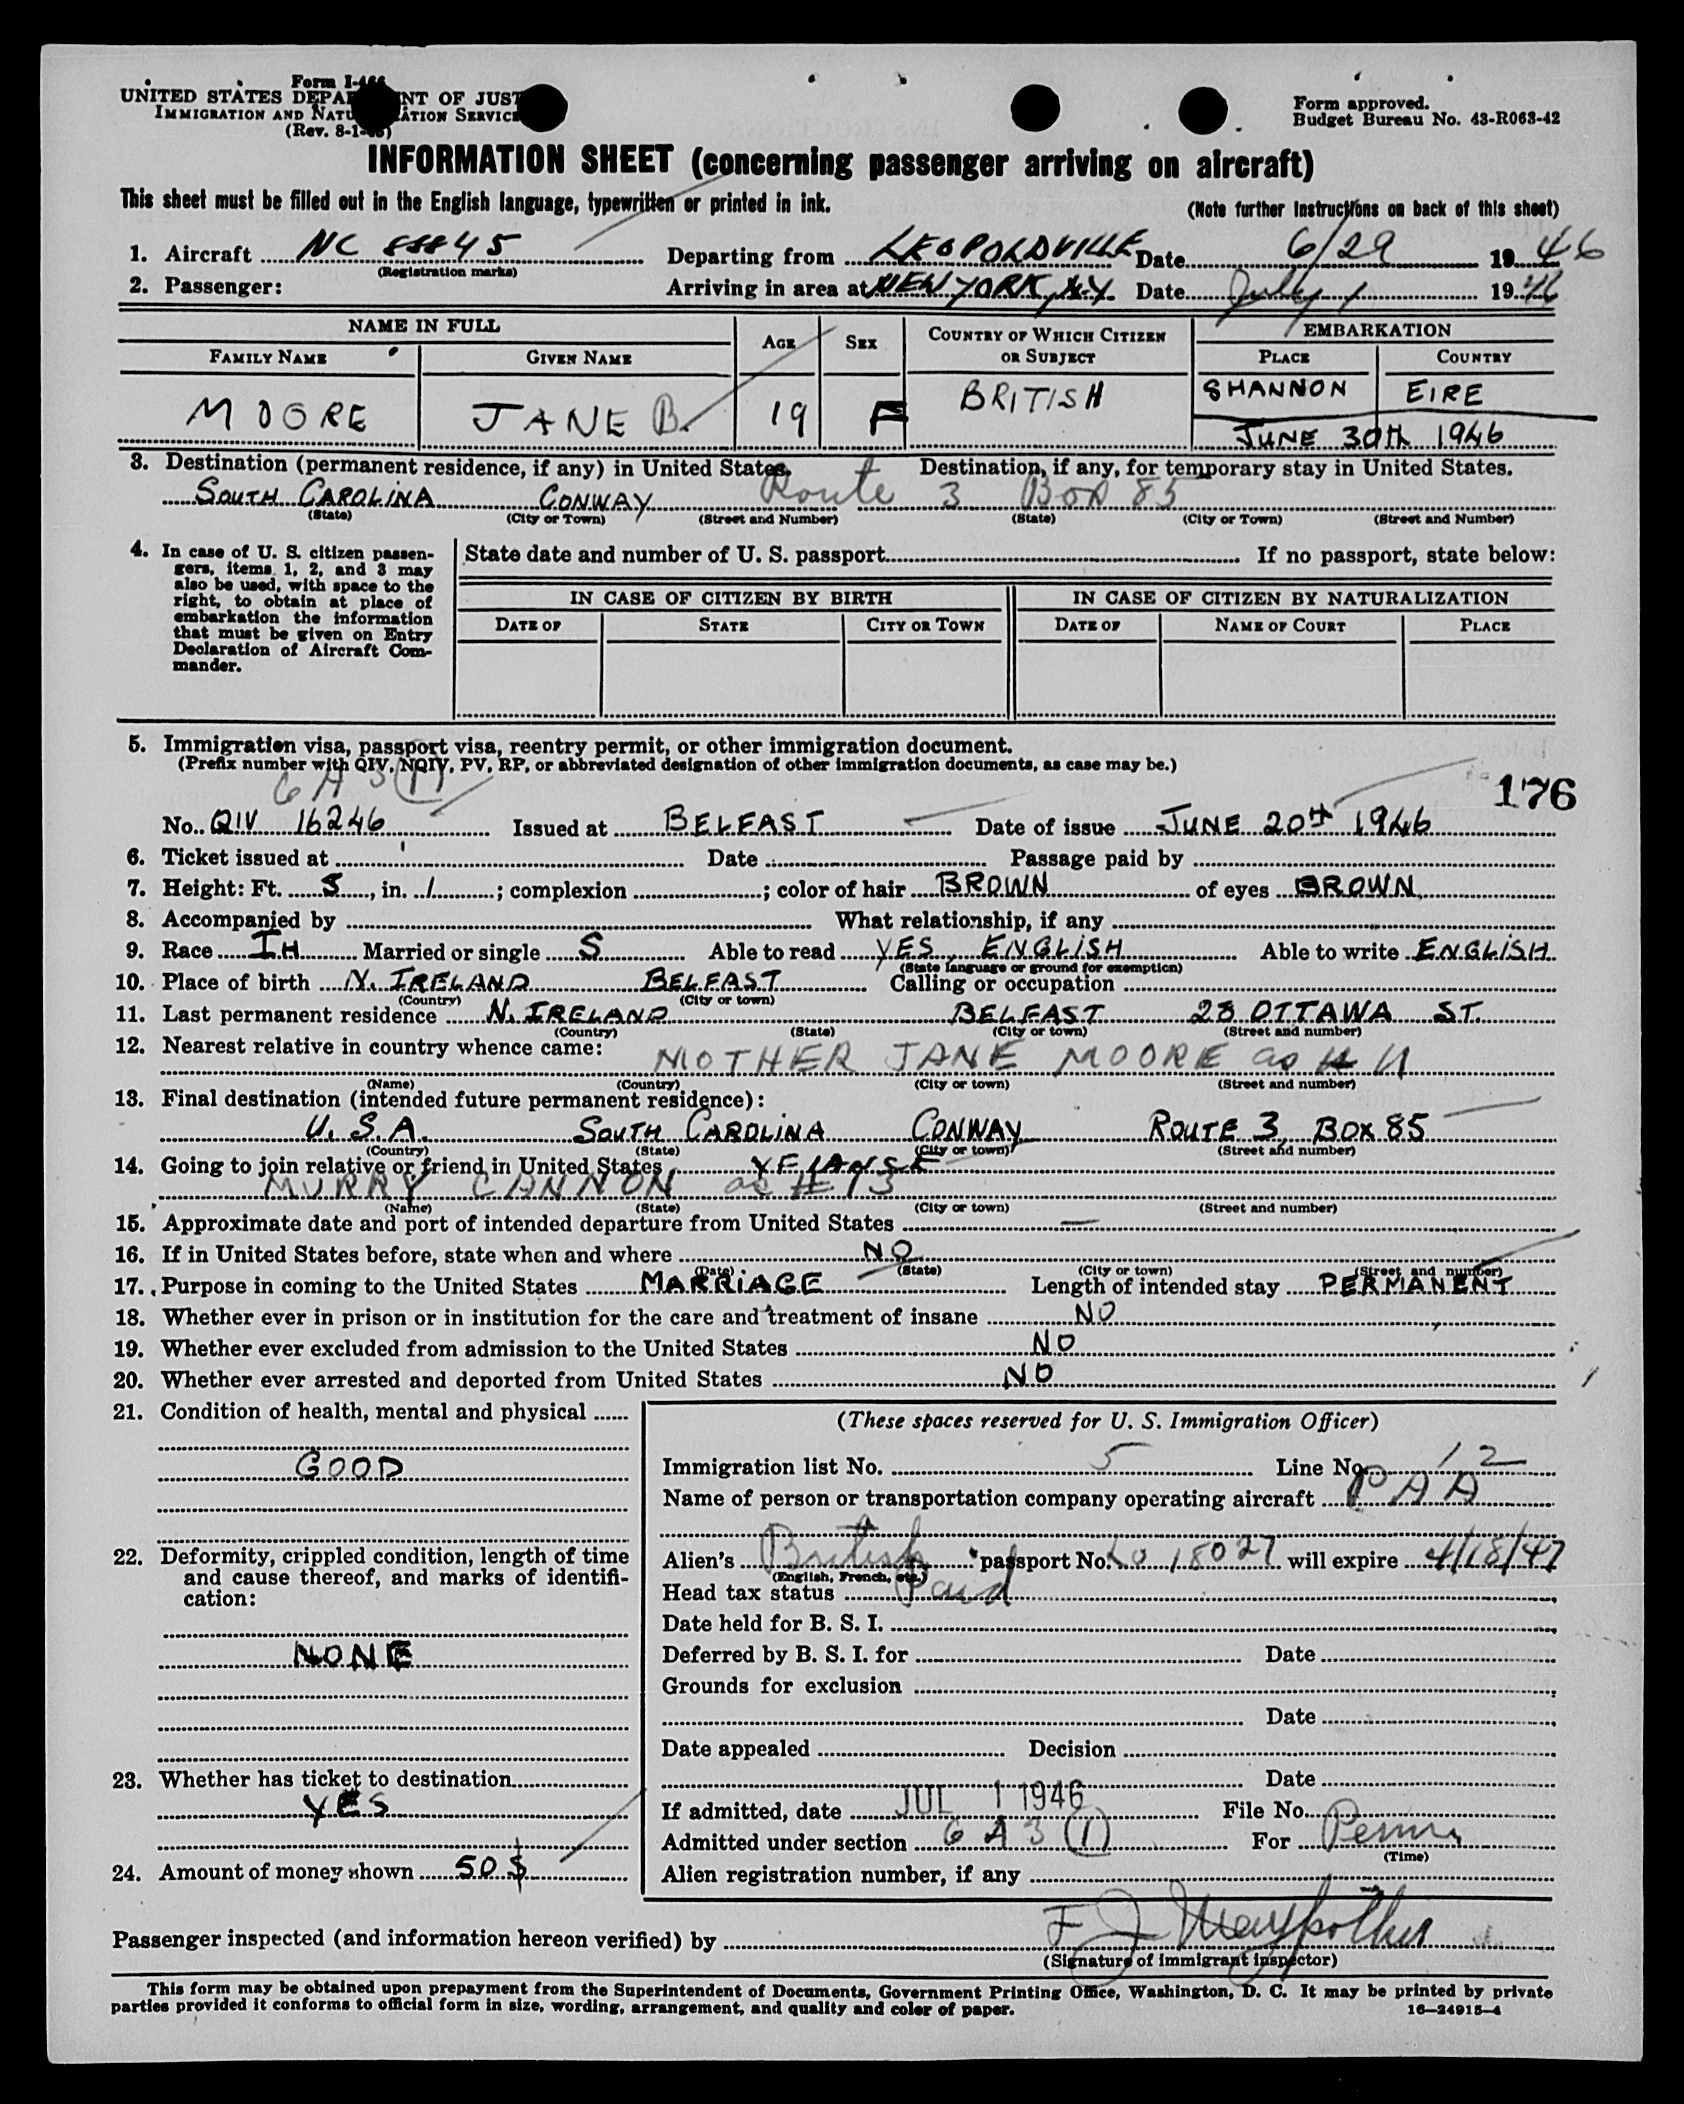 Form I-466
UNITED STATES DEPARTMENT OF JUSTICE
IMMIGRATION AND NATURALIZATION SERVICE
(Rev. 8-1-45)
Form approved.
Budget Bureau No. 43-R063-42
INFORMATION SHEET (concerning passenger arriving on aircraft)
This sheet must be filled out in the English language, typewritten or printed in ink.
(Note further instructions on back of this sheet)
1. Aircraft NC 88845 Departing from LEOPOLDVILLE Date 6/29 1946
(Registration marks)
2. Passenger: Arriving in area at NEW YORK, N.Y. Date July 1 1946
NAME IN FULL AGE SEX COUNTRY OF WHICH CITIZEN OR SUBJECT EMBARKATION
FAMILY NAME GIVEN NAME PLACE COUNTRY
MOORE JANE B. 19 F BRITISH SHANNON EIRE
JUNE 30th 1946
3. Destination (permanent residence, if any) in United States. Destination, if any, for temporary stay in United States.
SOUTH CAROLINA CONWAY Route 3 Box 85
(State) (City or Town) (Street and Number) (State) (City or Town) (Street and Number)
4. In case of U. S. citizen passen-
gers, items 1, 2, and 3 may
also be used, with space to the
right, to obtain at place of
embarkation the information
that must be given on Entry
Declaration of Aircraft Com-
mander.
State date and number of U. S. passport If no passport, state below:
IN CASE OF CITIZEN BY BIRTH IN CASE OF CITIZEN BY NATURALIZATION
DATE OF STATE CITY OR TOWN DATE OF NAME OF COURT PLACE
5. Immigration visa, passport visa, reentry permit, or other immigration document.
(Prefix number with QIV, NQIV, PV, RP, or abbreviated designation of other immigration documents, as case may be.)
6 A 3 (1)
176
No. QIV 16246 Issued at BELFAST Date of issue JUNE 20th 1946
6. Ticket issued at Date Passage paid by
7. Height: Ft. 5, in. 1; complexion ; color of hair BROWN of eyes BROWN
8. Accompanied by What relationship, if any
9. Race IH Married or single S Able to read YES, ENGLISH Able to write ENGLISH
(State language or ground for exemption)
10. Place of birth N. IRELAND BELFAST Calling or occupation
(Country) (City or town)
11. Last permanent residence N. IRELAND BELFAST 28 OTTAWA ST.
(Country) (State) (City or town) (Street and number)
12. Nearest relative in country whence came:
MOTHER JANE MOORE as # 11
(Name) (Country) (City or town) (Street and number)
13. Final destination (intended future permanent residence):
U.S.A. SOUTH CAROLINA CONWAY ROUTE 3, BOX 85
(Country) (State) (City or town) (Street and number)
14. Going to join relative or friend in United States
MURRY CANNON as # 13
(Name) (State) (City or town) (Street and number)
15. Approximate date and port of intended departure from United States —
16. If in United States before, state when and where NO
(Date) (State) (City or town) (Street and number)
17. Purpose in coming to the United States MARRIAGE Length of intended stay PERMANENT
18. Whether ever in prison or in institution for the care and treatment of insane NO
19. Whether ever excluded from admission to the United States NO
20. Whether ever arrested and deported from United States NO
21. Condition of health, mental and physical
GOOD
22. Deformity, crippled condition, length of time
and cause thereof, and marks of identifi-
cation:
NONE
23. Whether has ticket to destination
YES
24. Amount of money shown 50 $
(These spaces reserved for U. S. Immigration Officer)
Immigration list No. 5 Line No. 12
Name of person or transportation company operating aircraft PAA
Alien's British passport No. Lo 18027 will expire 4/18/47
(English, French, etc.)
Head tax status Paid
Date held for B. S. I.
Deferred by B. S. I. for Date
Grounds for exclusion
Date
Date appealed Decision
Date
If admitted, date JUL 1 1946 File No.
Admitted under section 6 A 3 (1) For Perm
(Time)
Alien registration number, if any
Passenger inspected (and information hereon verified) by
(Signature of immigrant inspector)
This form may be obtained upon prepayment from the Superintendent of Documents, Government Printing Office, Washington, D. C. It may be printed by private
parties provided it conforms to official form in size, wording, arrangement, and quality and color of paper.
16—24915-4